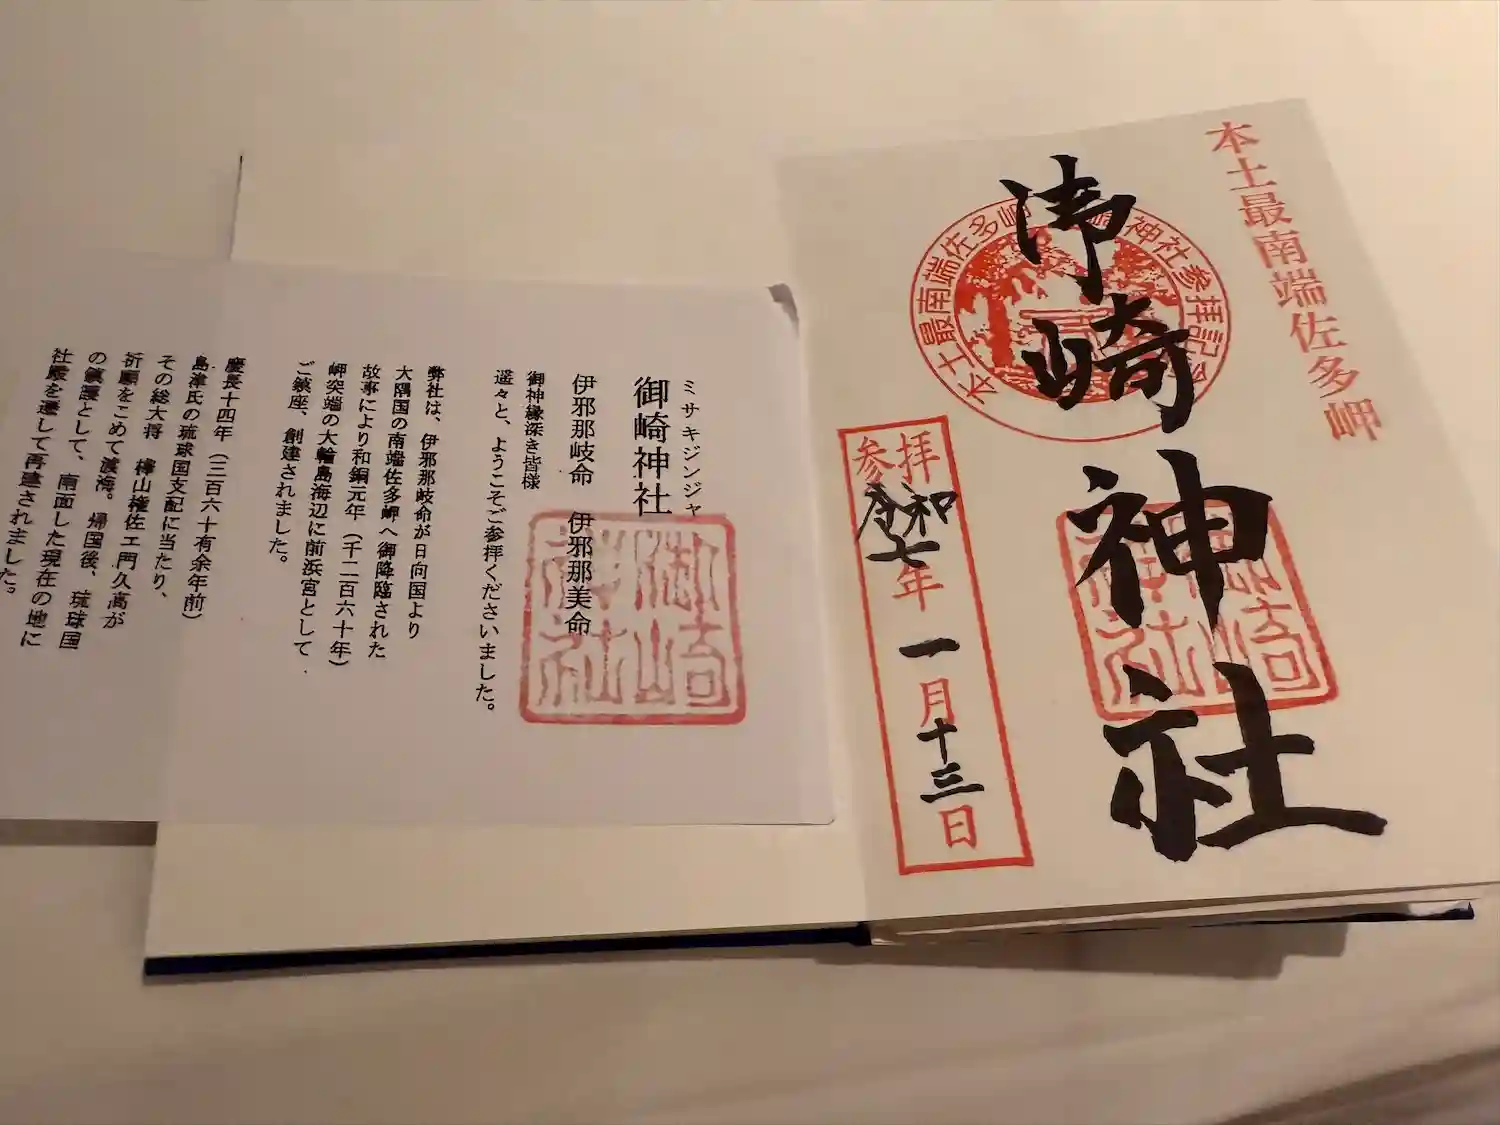 本土最南端佐多岬
御崎神社
本土最南端佐多岬
神社参拝記
御崎
神社
参拝
令和七年一月十三日
ミサキジンジャ
御崎神社
伊邪那岐命　伊邪那美命
御神縁深き皆様
遥々と、ようこそご参拝くださいました。
御崎
神社
弊社は、伊邪那岐命が日向国より
大隅国の南端佐多岬へ御降臨された
故事により和銅元年（千二百六十年）
岬突端の大輪島海辺に前浜宮として
ご鎮座、創建されました。
慶長十四年（三百六十有余年前）
島津氏の琉球国支配に当たり、
その総大将　樺山権佐エ門久高が
祈願をこめて渡海。帰国後、琉球国
の鎮護として、南面した現在の地に
社殿を遷して再建されました。